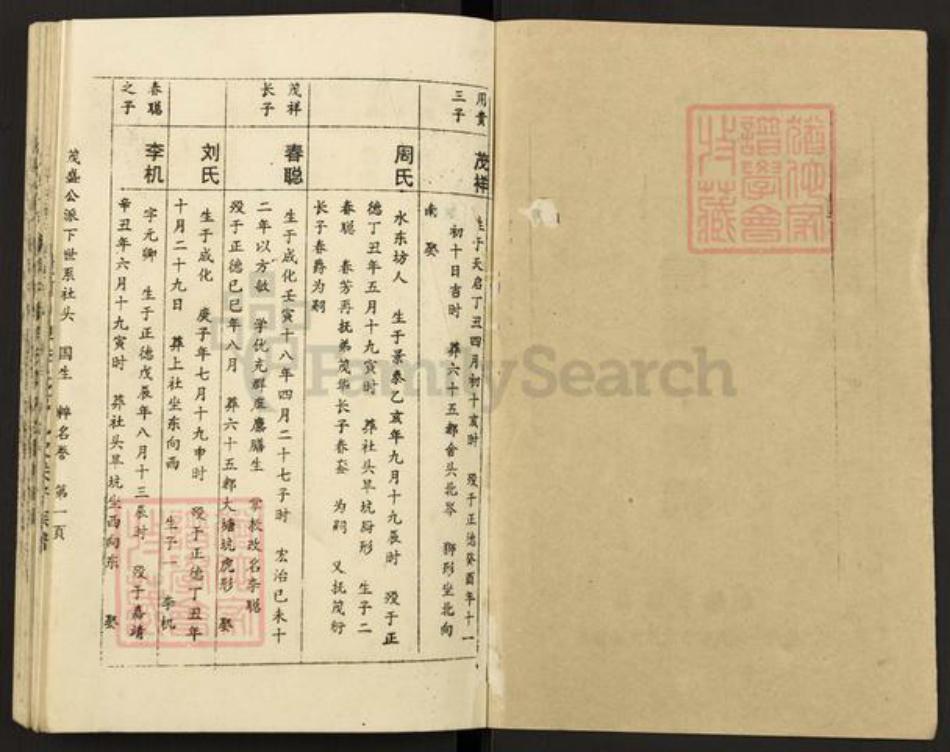 用贵
三子
茂祥
生于天启丁丑四月初十亥时 殁于正德癸酉年十一
初十日吉时 葬六十五都舍头北岑 狮形坐北向
南 娶
周氏
水东坊人 生于景泰乙亥年九月十九辰时 殁于正
德丁丑年五月十九寅时 葬社头旱坑 形 生子二
春聪 春芳再抚弟茂华长子春 为嗣 又抚茂衍
长子春爵为嗣
茂祥
长子
春聪
生于成化壬寅十八年四月二十七子时 宏治已未十
二年以方敏 学优充群庠廩膳生 掌教改名李聪
殁于正德已巳年八月 葬六十五都大塘坑虎形 娶
刘氏
生于成化 庚子年七月十九申时 殁于正德丁丑年
十月二十九日 葬上社坐东向西 生子一 李机
春聪
之子
李机
字元卿 生于正德戊辰年八月十三辰时 殁于嘉靖
辛丑年六月十九寅时 葬社头旱坑坐西向东 娶
茂盛公派下世系社头 国生 粹名 第一頁
猶他家
譜學會
收藏
FamilySearch